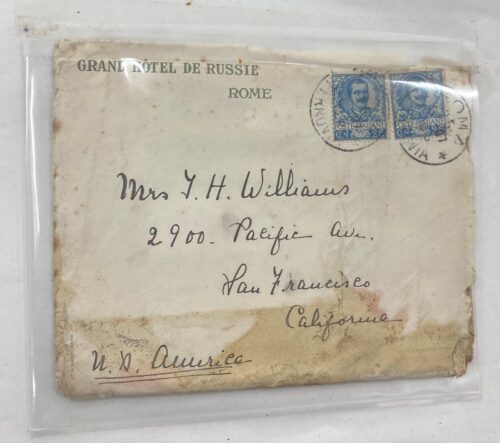 GRAND HÔTEL DE RUSSIE
ROME
POSTE ITALIANE
POSTE ITALIANE
ROMA
Mrs T. H. Williams
2900. Pacific Ave.
San Francisco
California
U. S. America